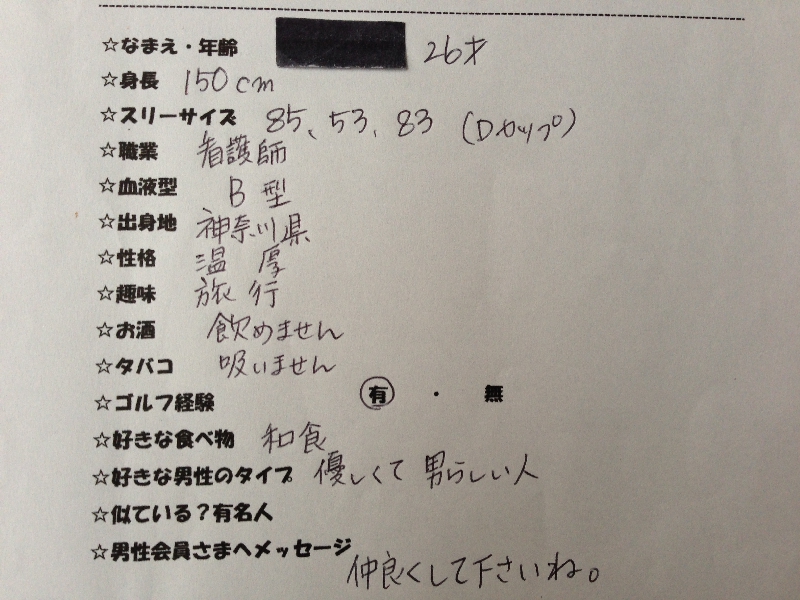 ☆なまえ・年齢 26才
☆身長 150cm
☆スリーサイズ 85、53、83 (Dカップ)
☆職業 看護師
☆血液型 B型
☆出身地 神奈川県
☆性格 温厚
☆趣味 旅行
☆お酒 飲めません
☆タバコ 吸いません
☆ゴルフ経験 有・無
☆好きな食べ物 和食
☆好きな男性のタイプ 優しくて 男らしい人
☆似ている?有名人
☆男性会員さまへメッセージ
仲良くして下さいね。